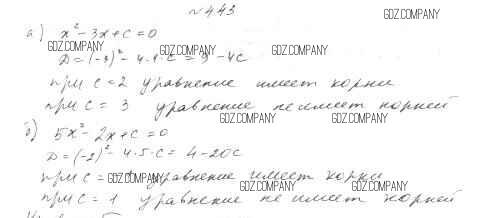 №443
GDZ.COMPANY
а) x² - 3x + c = 0
GDZ.COMPANY GDZ.COMPANY GDZ.COMPANY
D = (-3)² - 4·1·c = 9 - 4c
при c = 2 уравнение имеет корни
при c = 3 уравнение не имеет корней
GDZ.COMPANY GDZ.COMPANY
б) 5x² - 2x + c = 0
D = (-2)² - 4·5·c = 4 - 20c
при c = уравнение имеет корни
GDZ.COMPANY GDZ.COMPANY GDZ.COMPANY
при c = 1 уравнение не имеет корней